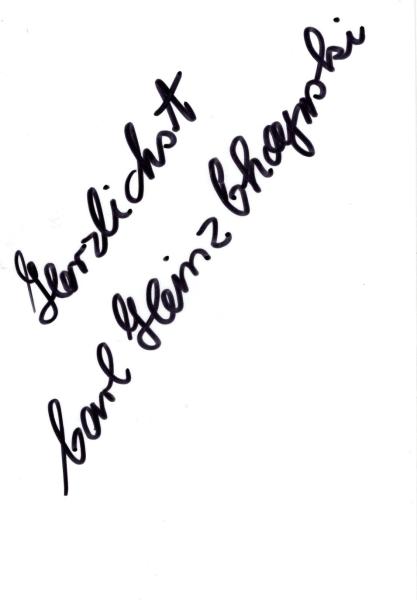 Herzlichst
Carl Heinz Choynski